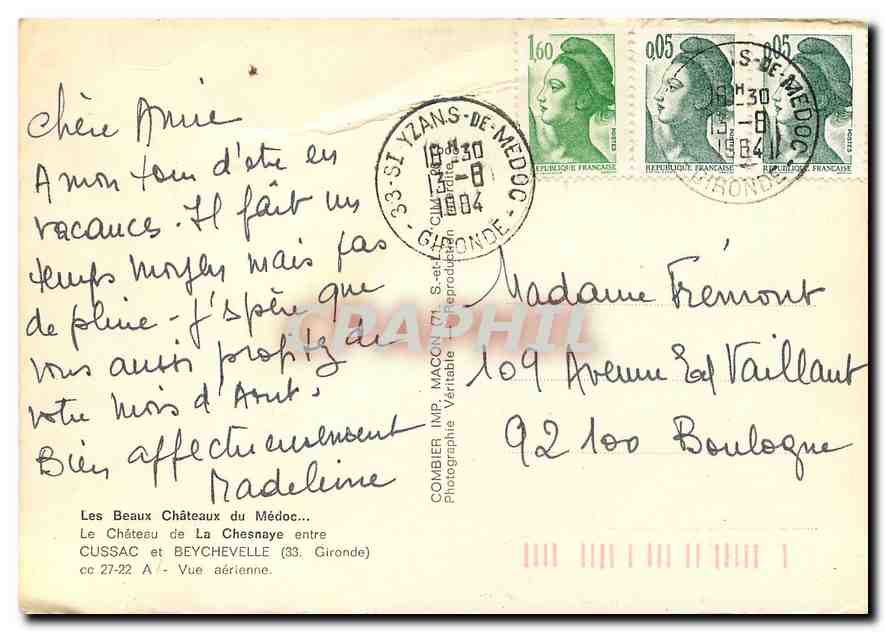 Chère Annie
A mon tour d'être en
vacances. Il fait un
temps moyen mais pas
de pluie - J'espère que
vous aussi profitez de
votre mois d'Aout.
Bien affectueusement
Madeleine
Les Beaux Châteaux du Médoc...
Le Château de La Chesnaye entre
CUSSAC et BEYCHEVELLE (33. Gironde)
cc 27-22 A - Vue aérienne.
COMBIER IMP. MACON (71. S.-et-L.
Photographie Véritable - Reproduction interdite
33-ST YZANS-DE-MEDOC
18H30
13-8
1984
- GIRONDE -
1,60
REPUBLIQUE FRANÇAISE
0,05
POSTES
REPUBLIQUE FRANÇAISE
0,05
POSTES
REPUBLIQUE FRANÇAISE
S-DE-MEDOC
18H30
13-8
1984
GIRONDE -
Madame Frémont
109 Avenue Ed Vaillant
92100 Boulogne
CPAPHIL